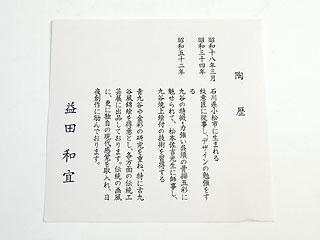 陶歴
昭和十八年三月 石川県小松市に生まれる
昭和三十四年 紋意匠に従事し、デザインの勉強をする
昭和五十二年 九谷の特徴・力強い呉須の骨描五彩に
魅せられて、松本佐吉先生に師事し、
九谷焼上絵付の技術を習得する
青九谷や金彩の研究を重ね、特に古九
谷風錦絵を得意とし、各方面の伝統工
芸展に出品しております。伝統の画風
に、更に独自の現代感覚を取入れ、日
夜創作に励んでおります。
益田和宜